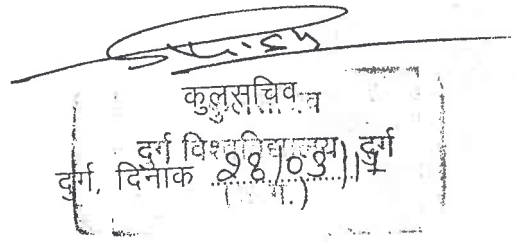 कुलसचिव
दुर्ग विश्वविद्यालय दुर्ग
दुर्ग, दिनांक 28/03/17